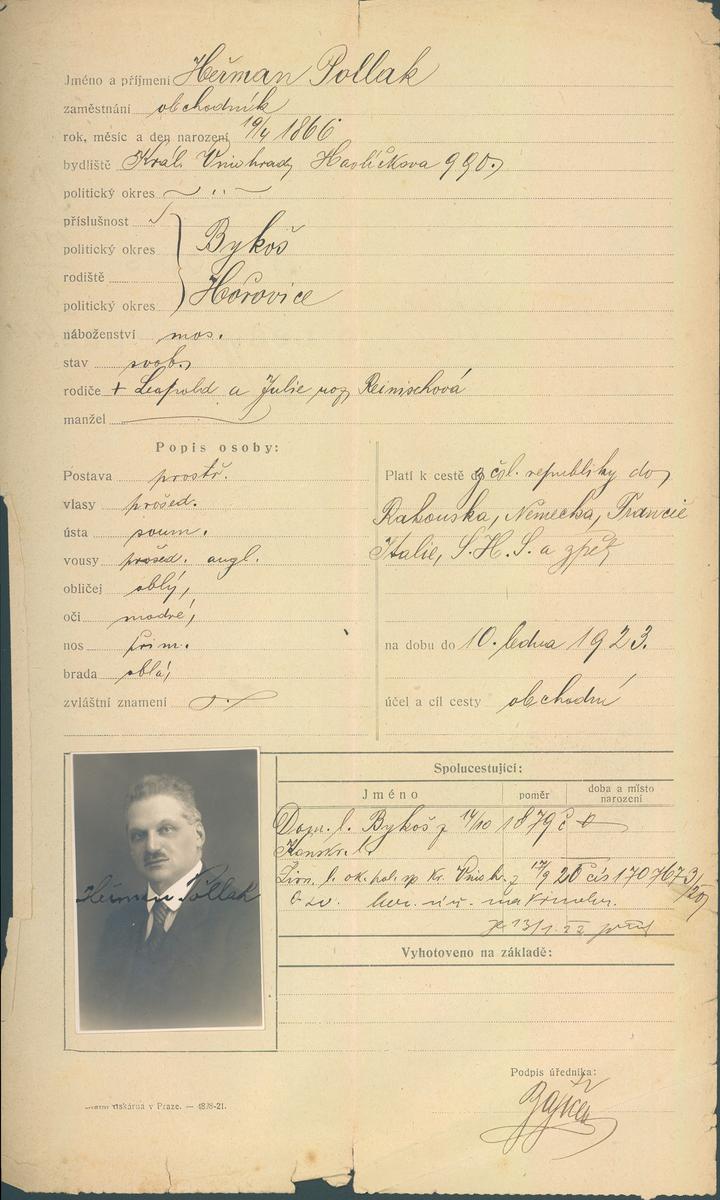 Jméno a příjmení Heřman Pollak
zaměstnání obchodník
rok, měsíc a den narození 19/4 1866
bydliště Král. Vinohrady Havlíčkova 990.
politický okres
příslušnost
politický okres Bykoš
rodiště
politický okres Hořovice
náboženství mos.
stav svob.
rodiče + Leopold a Julie roz Reinischová
manžel
Popis osoby:
Postava prostř.
vlasy prošed.
ústa soum.
vousy prošed. angl.
obličej oblý,
oči modré,
nos přim.
brada oblá,
zvláštní znamení
Platí k cestě do z čsl. republiky do
Rakouska, Německa, Francie
Italie, S.H.S. a zpět
na dobu do 10. ledna 1923.
účel a cíl cesty obchodní
Heřman Pollak
Spolucestující:
Jméno poměr doba a místo narození
Dom. l. Bykoš z 14/10 1879 č
l. ok. pol. sp. Kr. Vinoh. z 17/9 20 čís 1707673/20
13/1. 22
Vyhotoveno na základě:
Podpis úředníka:
tiskárna v Praze. — 4838-21.